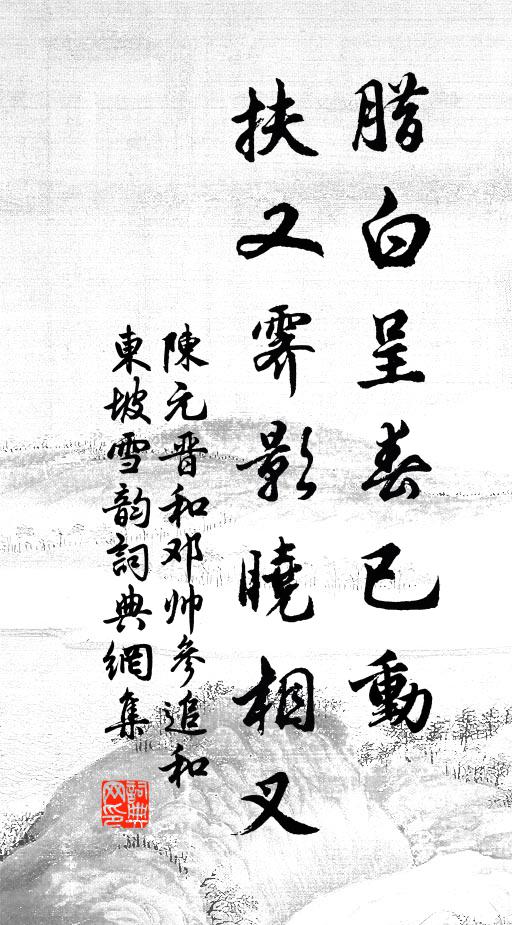 腊白呈春已動
扶又霽影曉相叉
陳元晋和邓帅參追和
東坡雪韵詞典網集
詞典
网印